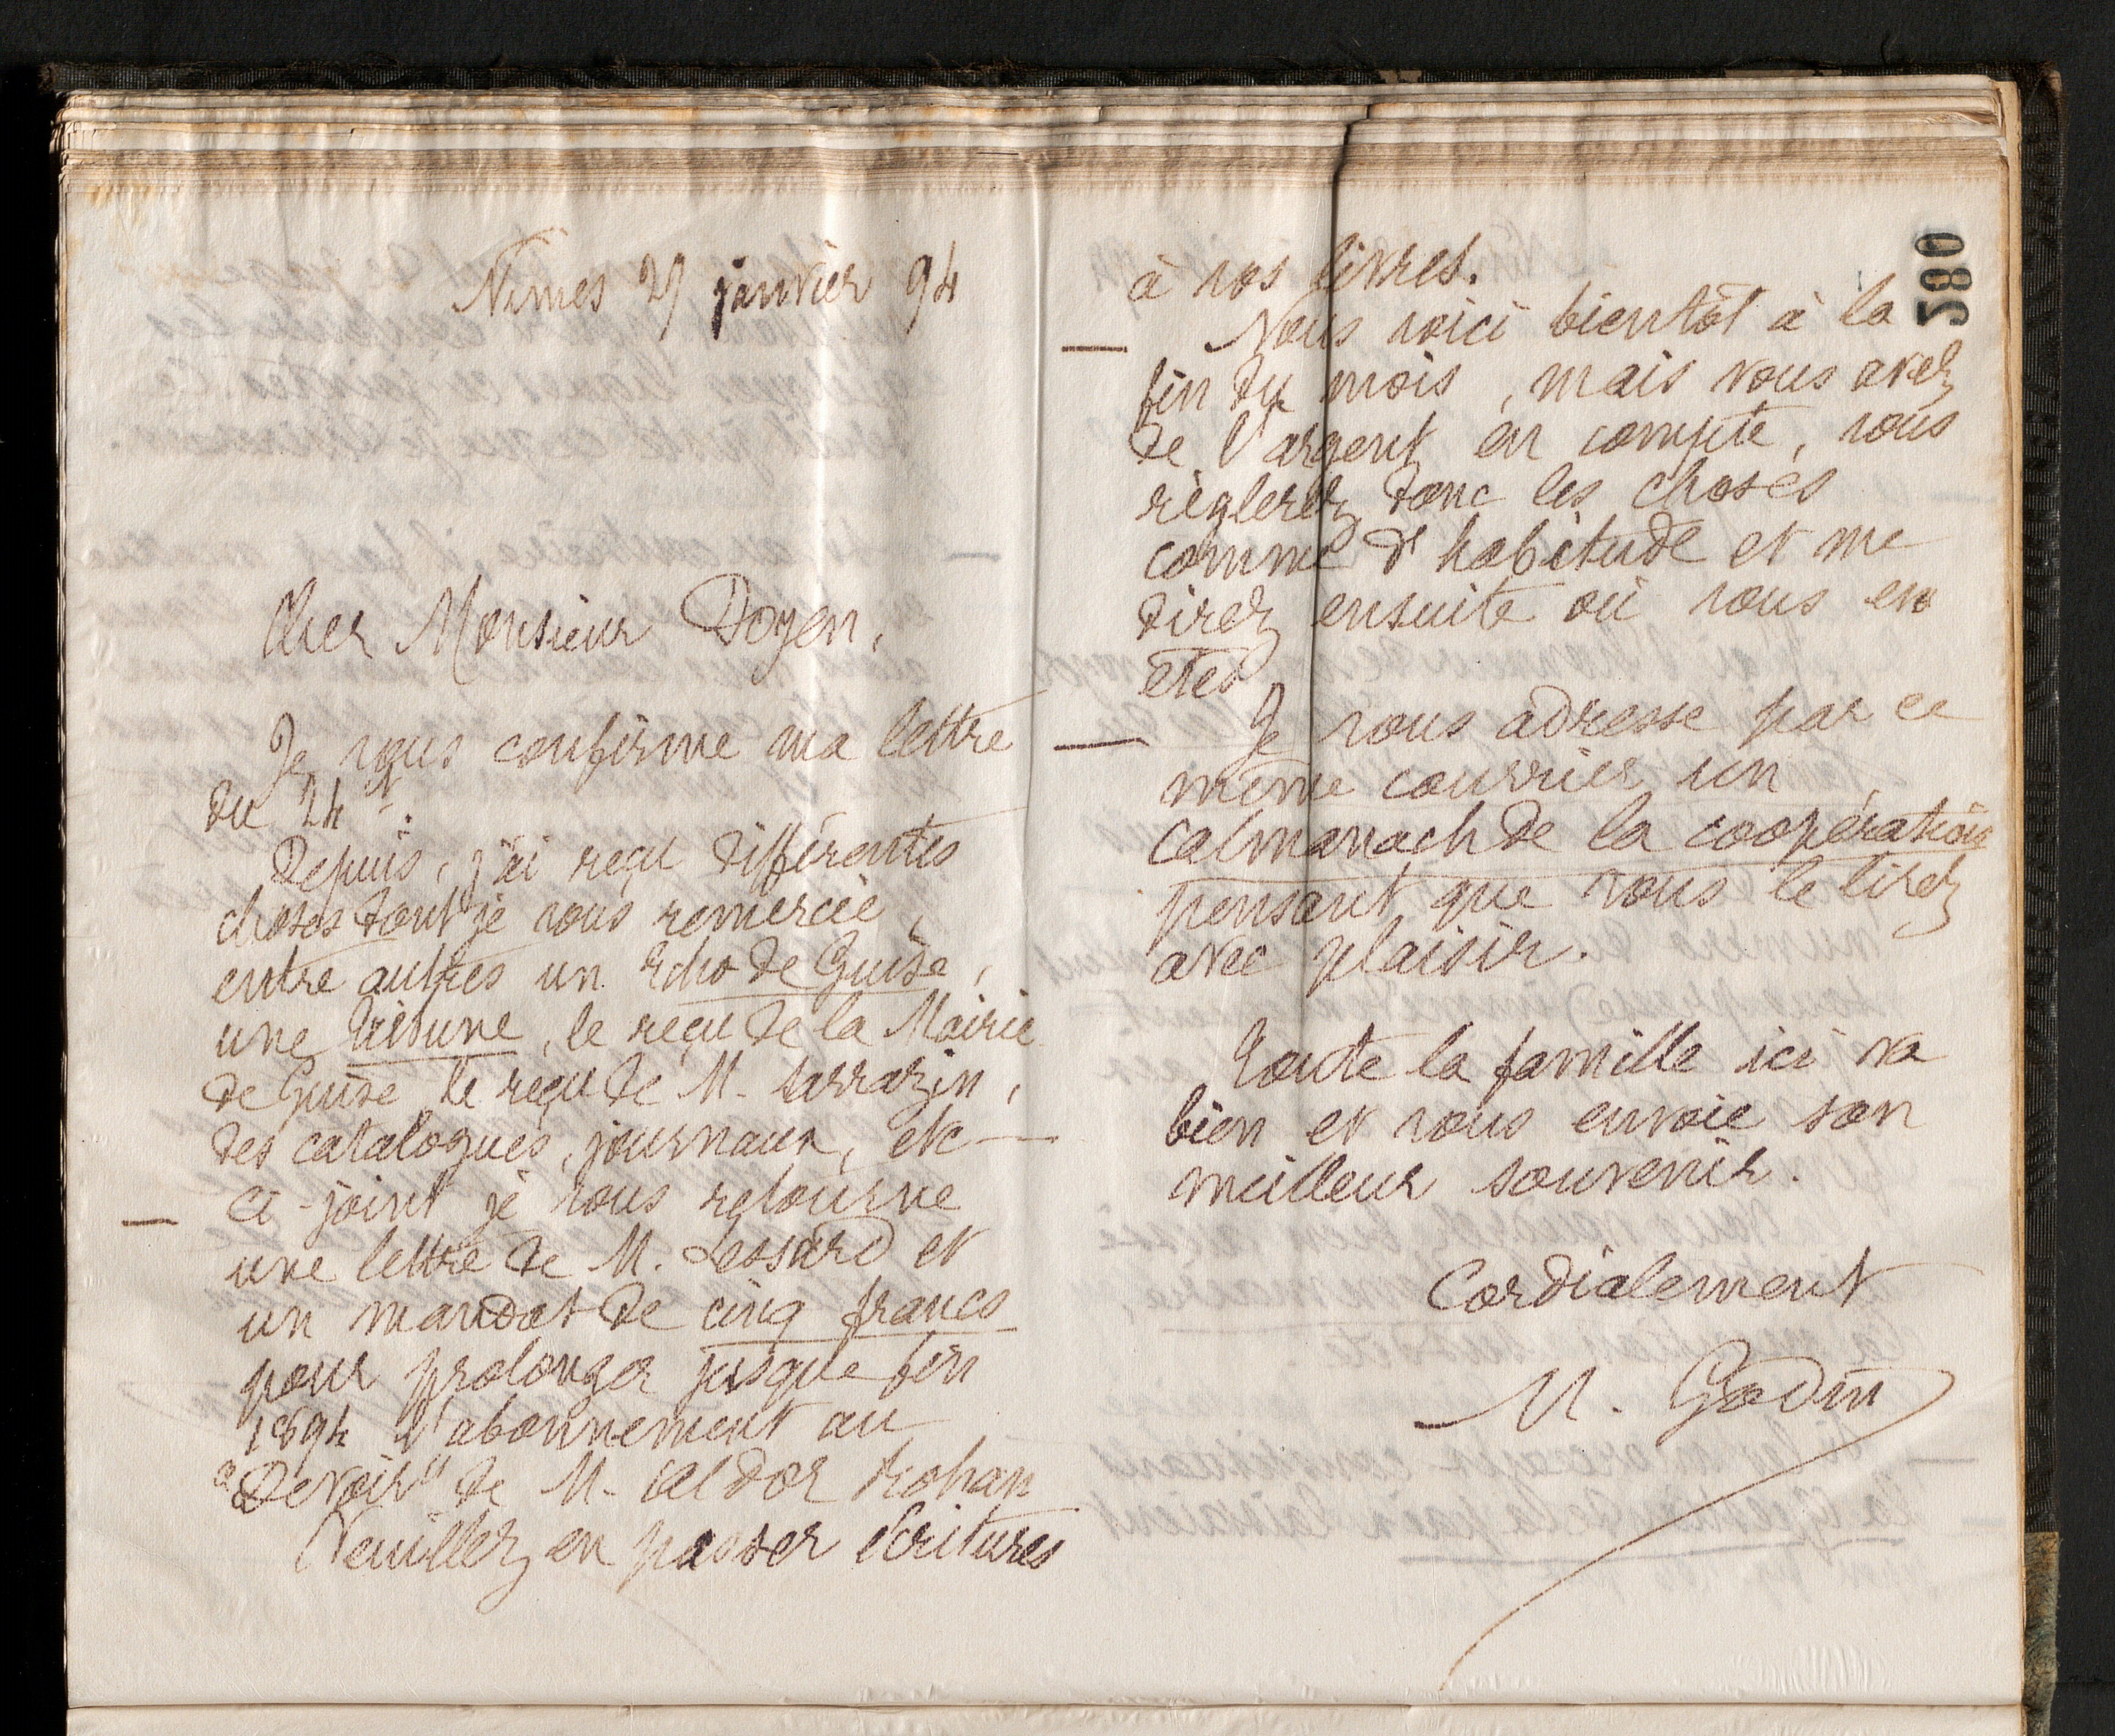 Nimes 27 janvier 94
Cher Monsieur Doyen,
Je vous confirme ma lettre
du 24 ct.
Depuis, j'ai reçu différentes
choses dont je vous remercie,
entre autres un Echo de Guise,
une Tribune, le reçu de la Mairie
de Guise le reçu de M. Sarrazin,
des catalogues, journaux, etc —
— Ci-joint je vous retourne
une lettre de M. Lessard et
un mandat de cinq francs
pour prolonger jusque fin
1894 l'abonnement au
"Devoir" de M.
Veuillez en passer écritures
580
à vos livres.
— Vous voici bientôt à la
fin du mois, mais vous avez
de l'argent en compte, vous
règlerez donc les choses
comme d'habitude et me
direz ensuite où vous en
êtes
— Je vous adresse par ce
même courrier un
almanach de la coopération
pensant que vous le lirez
avec plaisir.
Toute la famille ici va
bien et vous envoie son
meilleur souvenir.
Cordialement
M. Godin